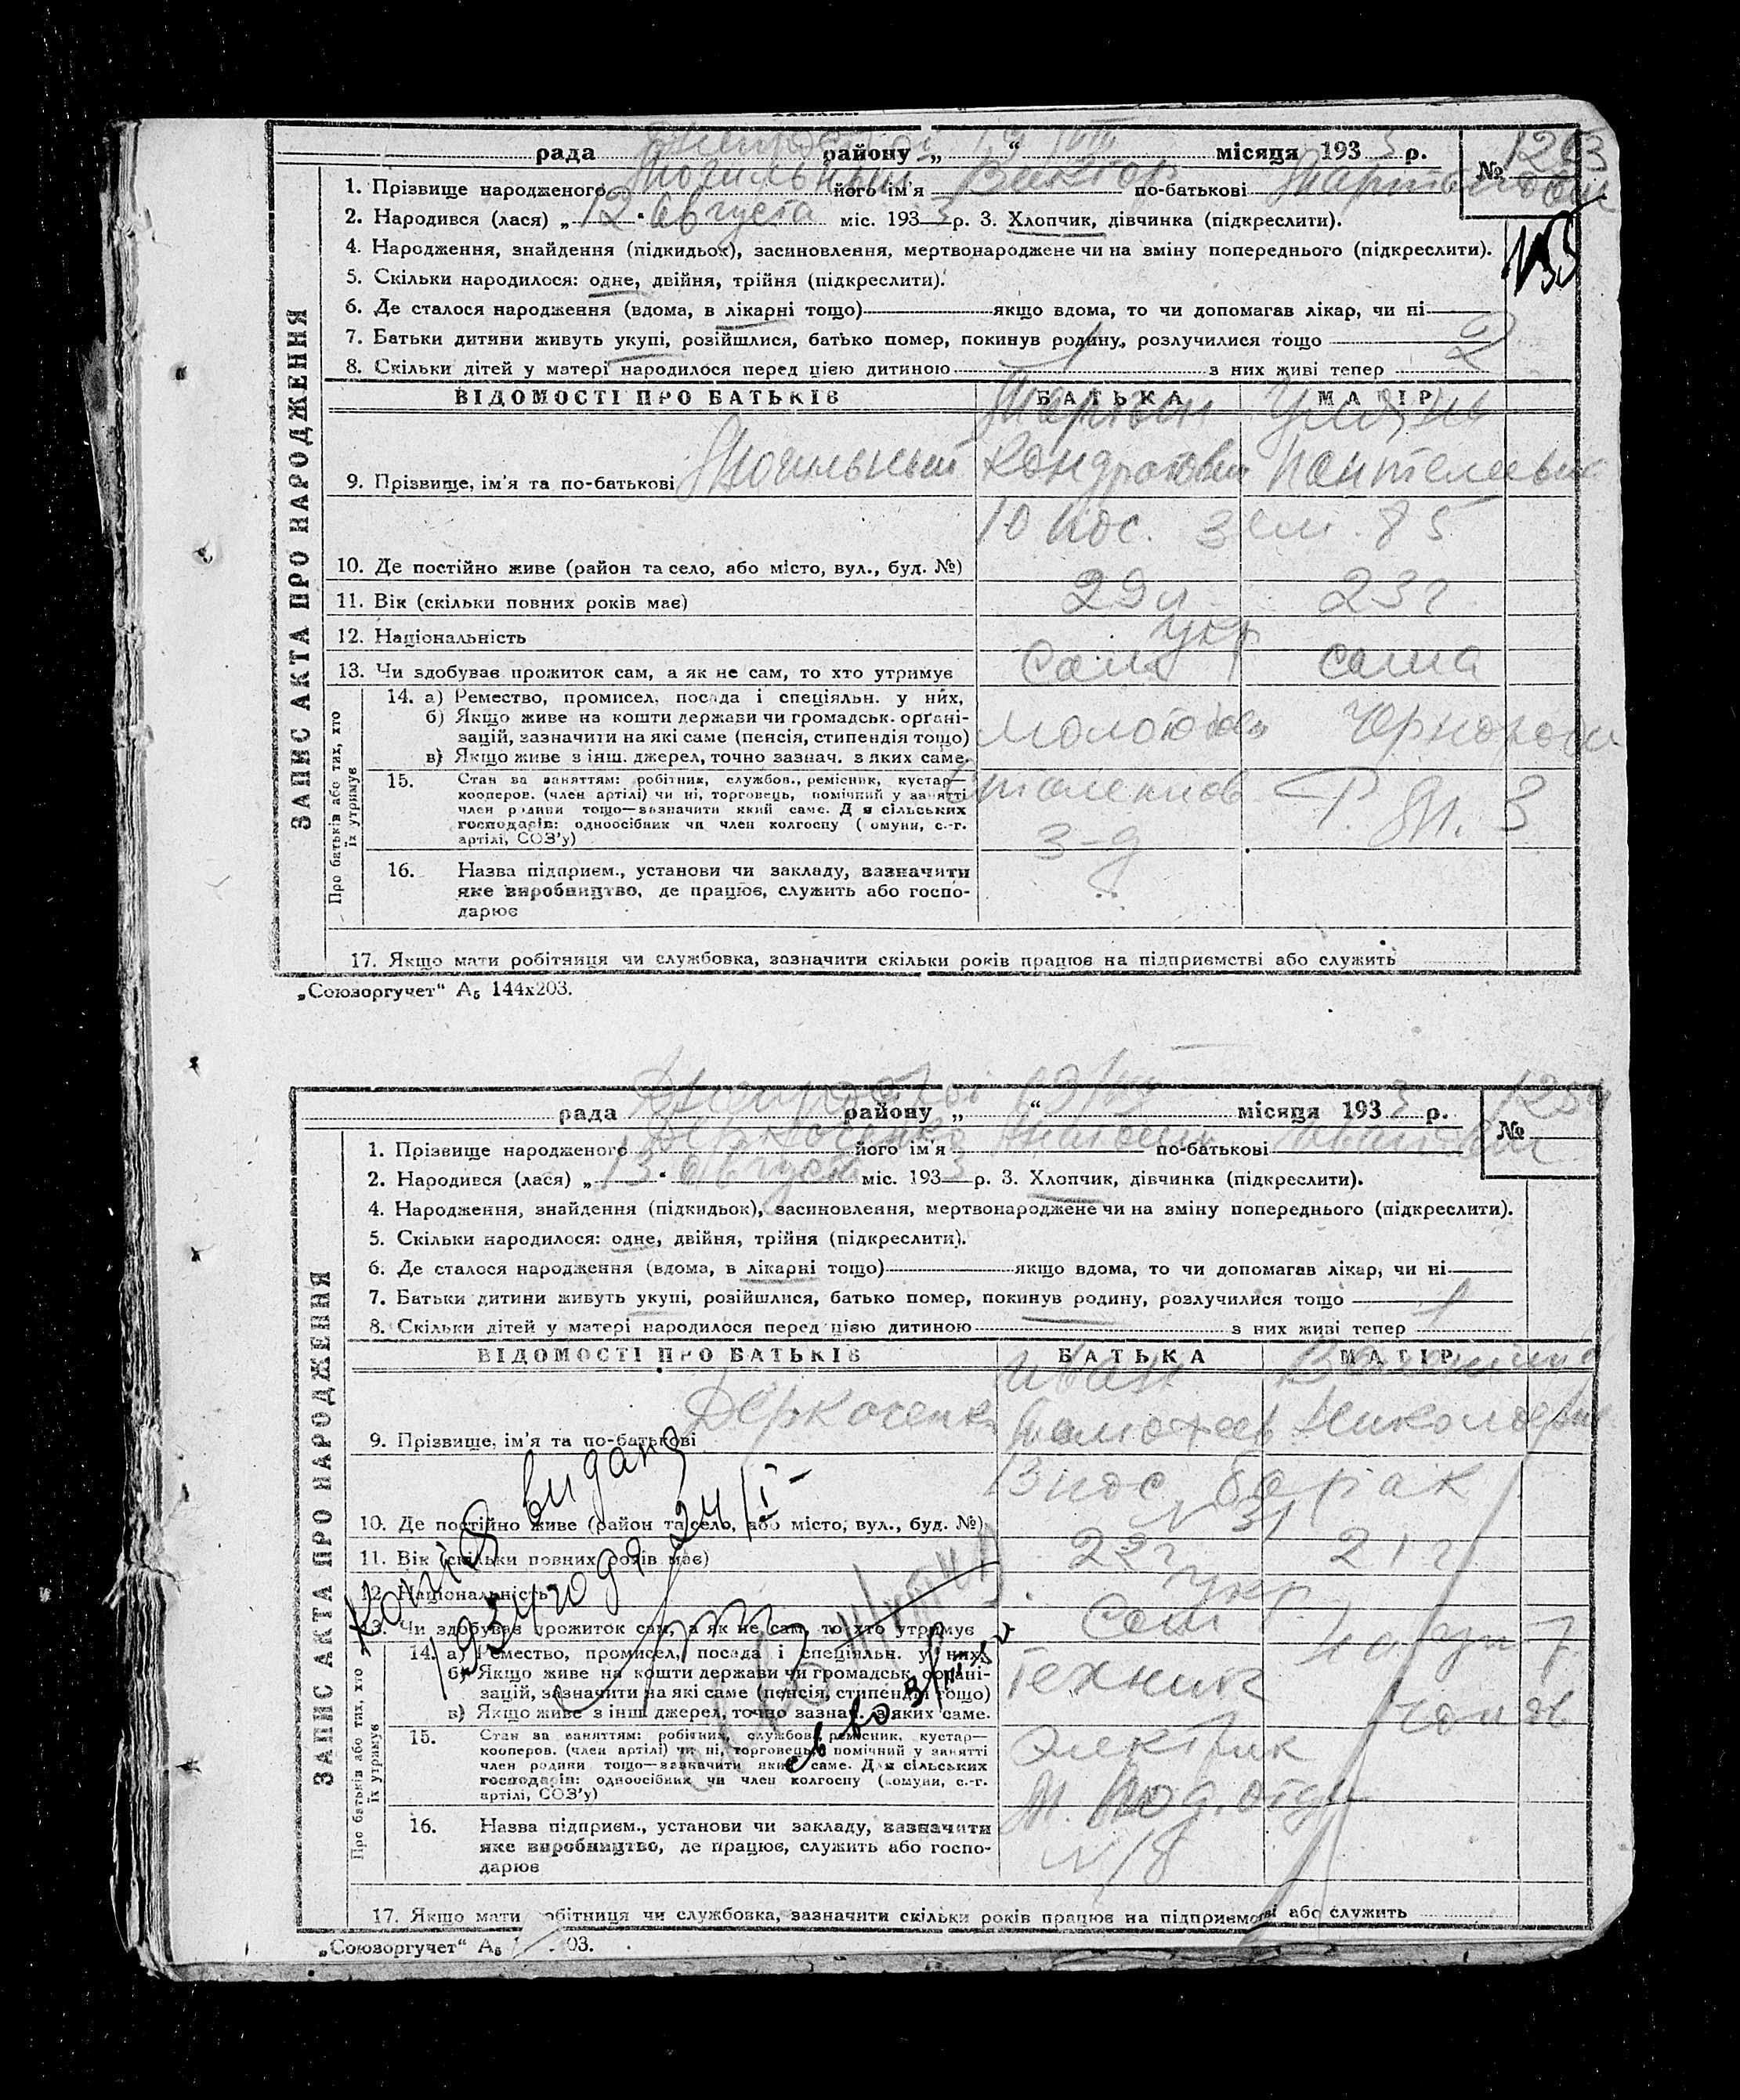 рада района „ “ місяця 1933 р. № 1253
1. Прізвище народженого Могильный його ім'я Виктор по-батькові Мартынович
2. Народився (лася) „12“ августа міс. 1933 р. 3. Хлопчик, дівчинка (підкреслити).
4. Народження, знайдення (підкидьок), засиновлення, мертвонароджене чи на зміну попереднього (підкреслити).
5. Скільки народилося: одне, двійня, трійня (підкреслити).
6. Де сталося народження (вдома, в лікарні тощо) якщо вдома, то чи допомагав лікар, чи ні
7. Батьки дитини живуть укупі, розійшлися, батько помер, покинув родину, розлучилися тощо
8. Скільки дітей у матері народилося перед цією дитиною 1 з них живі тепер
ЗАПИС АКТА ПРО НАРОДЖЕННЯ
ВІДОМОСТІ ПРО БАТЬКІВ БАТЬКА МАТІР
Мартын
9. Прізвище, ім'я та по-батькові Могильный Кондратович Пантелеевна
10 пос. зем. 85
10. Де постійно живе (район та село, або місто, вул., буд. №)
11. Вік (скільки повних років має) 29 л 23 г
12. Національність укр
13. Чи здобував прожиток сам, а як не сам, то хто утримує Сам сама
Про батьків або тих, хто їх утримує
14. а) Ремество, промисел, посада і спеціяльн. у них,
б) Якщо живе на кошти держави чи громадськ. органі-
зацій, зазначити на які саме (пенсія, стипендія тощо)
в) Якщо живе з інш. джерел, точно зазнач. з яких саме.
15. Стан за заняттям: робітник, службов., ремісник, кустар—
кооперов. (член артілі) чи ні, торговець, помічний у занятті
член родини тощо—зазначити який саме. Для сільських
господарів: одноосібник чи член колгоспу (комуни, с.-г.
артілі, СОЗ'у)
3-д
16. Назва підприєм., установи чи закладу, зазначити
яке виробництво, де працює, служить або госпо-
дарює
17. Якщо мати робітниця чи службовка, зазначити скільки років працює на підприємстві або служить
„Союзоргучет“ А₅ 144х203.
рада району „ “ місяця 1933 р. № 1254
1. Прізвище народженого Деркаченко його ім'я по-батькові Иванович
2. Народився (лася) „13“ августа міс. 1933 р. 3. Хлопчик, дівчинка (підкреслити).
4. Народження, знайдення (підкидьок), засиновлення, мертвонароджене чи на зміну попереднього (підкреслити).
5. Скільки народилося: одне, двійня, трійня (підкреслити).
6. Де сталося народження (вдома, в лікарні тощо) якщо вдома, то чи допомагав лікар, чи ні
7. Батьки дитини живуть укупі, розійшлися, батько помер, покинув родину, розлучилися тощо
8. Скільки дітей у матері народилося перед цією дитиною з них живі тепер
ЗАПИС АКТА ПРО НАРОДЖЕННЯ
ВІДОМОСТІ ПРО БАТЬКІВ БАТЬКА МАТІР
Иван
9. Прізвище, ім'я та по-батькові Деркаченко Николаевна
13 пос барак
10. Де постійно живе (район та село, або місто, вул., буд. №) № 31
11. Вік (скільки повних років має) 22 г 21 г
12. Національність укр
13. Чи здобував прожиток сам, а як не сам, то хто утримує Сам
Копія видана
1954 года 24/I
Про батьків або тих, хто їх утримує
14. а) Ремество, промисел, посада і спеціяльн. у них,
б) Якщо живе на кошти держави чи громадськ. органі-
зацій, зазначити на які саме (пенсія, стипендія тощо)
в) Якщо живе з інш. джерел, точно зазнач. з яких саме.
Техник
15. Стан за заняттям: робітник, службов., ремісник, кустар—
кооперов. (член артілі) чи ні, торговець, помічний у занятті
член родини тощо—зазначити який саме. Для сільських
господарів: одноосібник чи член колгоспу (комуни, с.-г.
артілі, СОЗ'у)
Электрик
16. Назва підприєм., установи чи закладу, зазначити
яке виробництво, де працює, служить або госпо-
дарює
№ 18
17. Якщо мати робітниця чи службовка, зазначити скільки років працює на підприємстві або служить
„Союзоргучет“ А₅ 03.